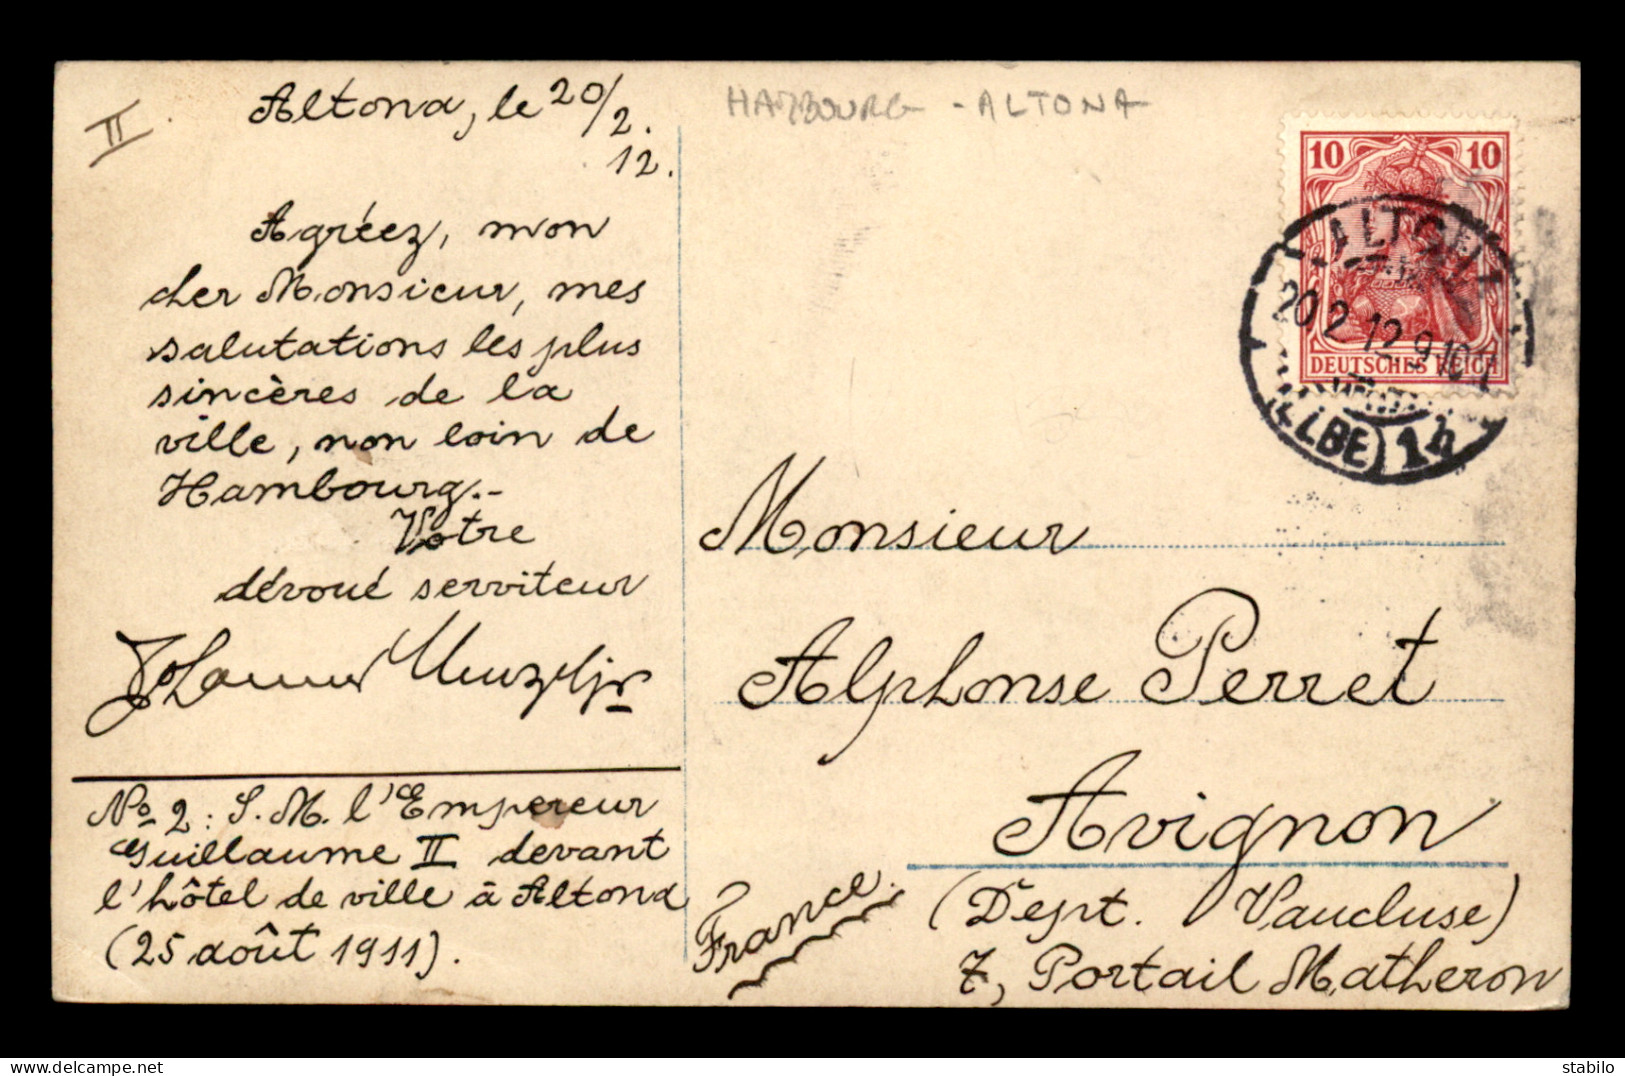 II
Altona, le 20/2.
12.
Agréez, mon
cher Monsieur, mes
salutations les plus
sincères de la
ville, non loin de
Hambourg.-
Votre
dévoué serviteur
Johannes
No 2: S. M. l'Empereur
Guillaume II devant
l'hôtel de ville à Altona
(25 août 1911).
HAMBOURG - ALTONA
10 10
DEUTSCHES REICH
ALTONA
20.2.12.9-10
(ELBE) 1h
Monsieur
Alphonse Perret
Avignon
France.
(Dept. Vaucluse)
7, Portail Matheron
delcampe.net
solbilo